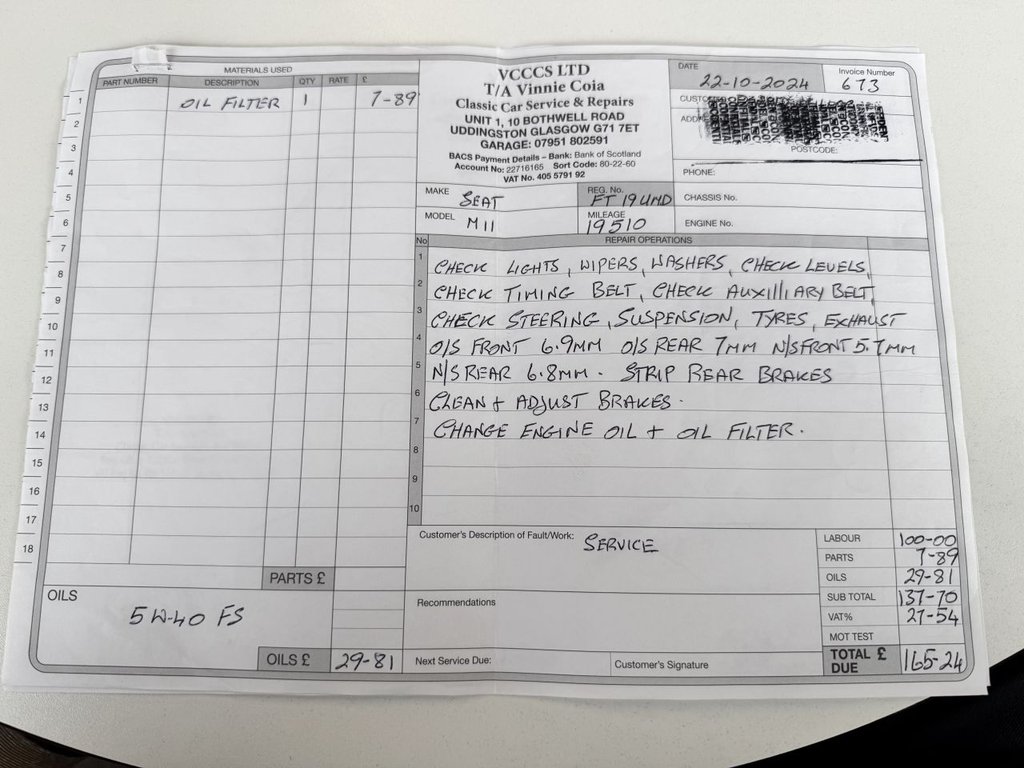 MATERIALS USED
PART NUMBER DESCRIPTION QTY RATE £
1 OIL FILTER 1 7-89
2
3
4
5
6
7
8
9
10
11
12
13
14
15
16
17
18
PARTS £
OILS
5W-40 FS
OILS £ 29-81
VCCCS LTD
T/A Vinnie Coia
Classic Car Service & Repairs
UNIT 1, 10 BOTHWELL ROAD
UDDINGSTON GLASGOW G71 7ET
GARAGE: 07951 802591
BACS Payment Details – Bank: Bank of Scotland
Account No: 22716165 Sort Code: 80-22-60
VAT No. 405 5791 92
DATE 22-10-2024 Invoice Number 673
POSTCODE:
PHONE:
MAKE SEAT REG. No. FT19UMD CHASSIS No.
MODEL M11 MILEAGE 19510 ENGINE No.
No REPAIR OPERATIONS
1 CHECK LIGHTS, WIPERS, WASHERS, CHECK LEVELS,
2 CHECK TIMING BELT, CHECK AUXILLIARY BELT,
3 CHECK STEERING, SUSPENSION, TYRES, EXHAUST
4 O/S FRONT 6.9MM O/S REAR 7MM N/S FRONT 5.7MM
5 N/S REAR 6.8MM. STRIP REAR BRAKES
6 CLEAN + ADJUST BRAKES.
7 CHANGE ENGINE OIL + OIL FILTER.
8
9
10
Customer's Description of Fault/Work: SERVICE
Recommendations
Next Service Due: Customer's Signature
LABOUR 100-00
PARTS 7-89
OILS 29-81
SUB TOTAL 137-70
VAT% 27-54
MOT TEST
TOTAL £ DUE 165-24